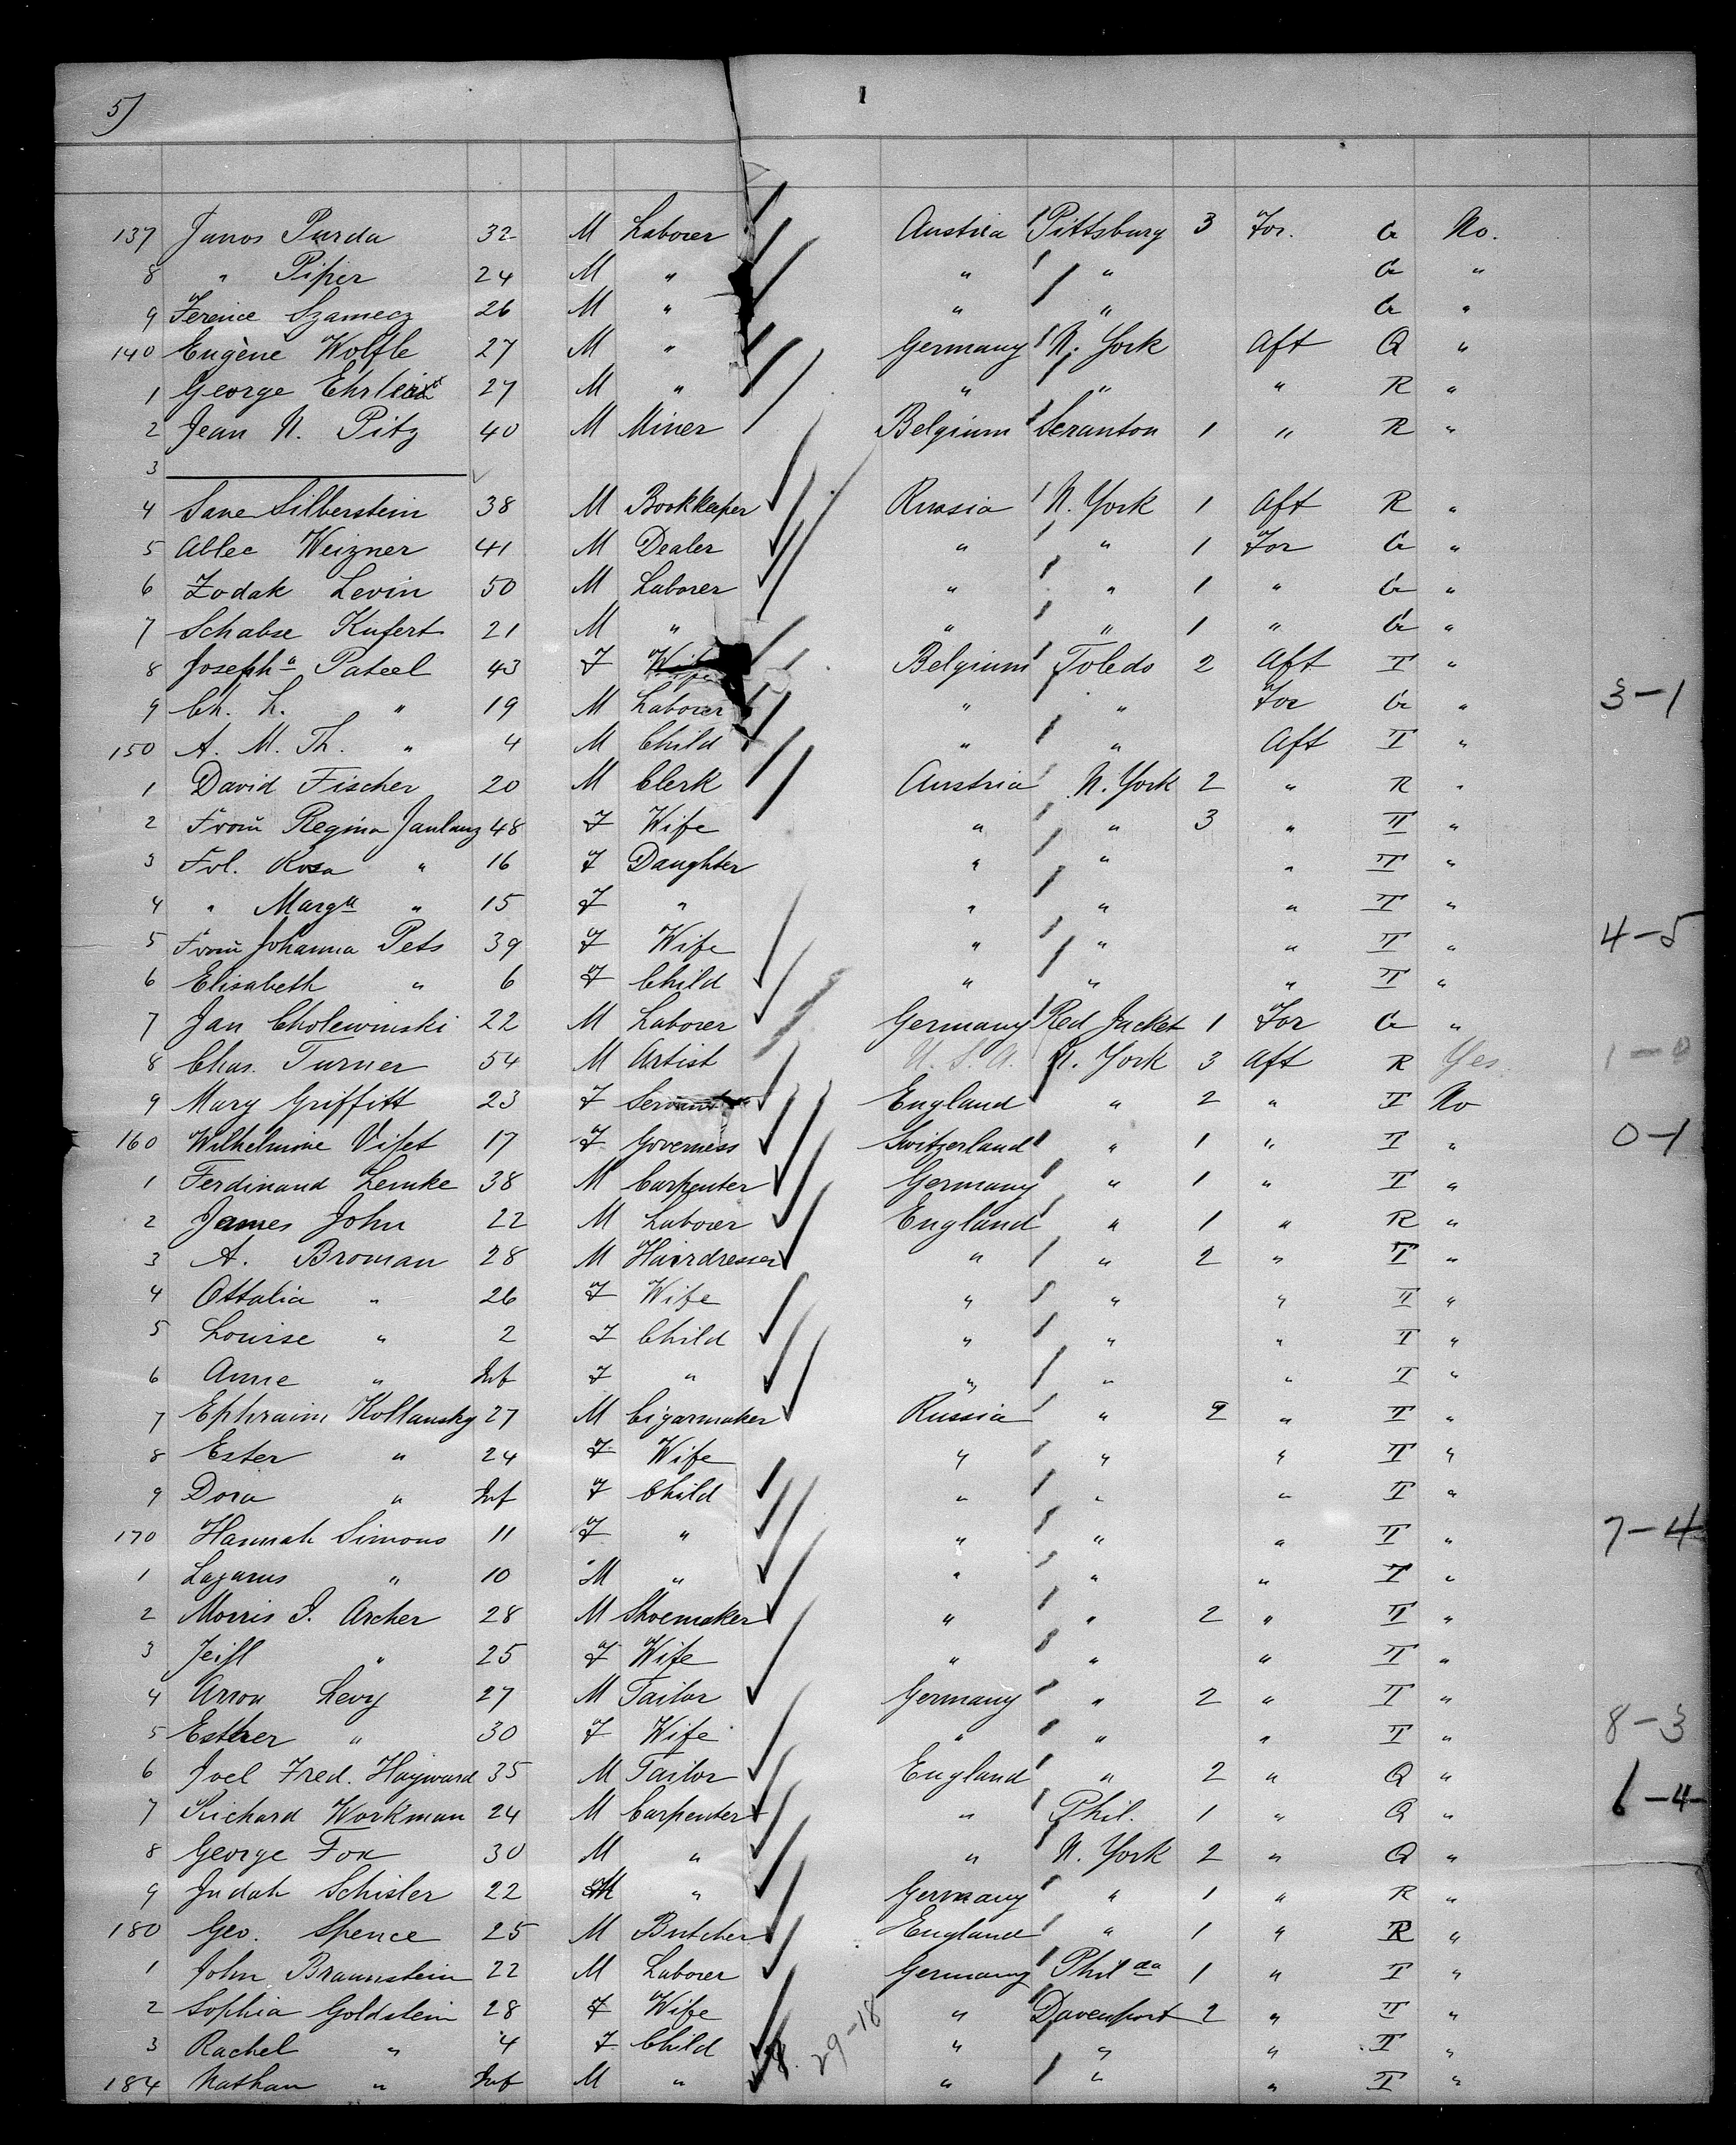 5)
1
137 Janos Purda 32 M Laborer Austria Pittsburg 3 For. G No.
8 " Piper 24 M " " " G "
9 Ference Szamecz 26 M " " " G "
140 Eugène Wolfle 27 M " Germany N. York Aft Q "
1 George 27 M " " " " R "
2 Jean N. Pitz 40 M Miner Belgium Scranton 1 " R "
3
4 Sane Silberstein 38 M Bookkeeper Russia N. York 1 Aft R "
5 Ablec Weizner 41 M Dealer " " 1 For G "
6 Zodak Levin 50 M Laborer " " 1 " G "
7 Schabse Kufert 21 M " " " 1 " G "
8 Joseph a Pateel 43 F Wife Belgium Toledo 2 Aft I "
9 Ch. L. " 19 M Laborer " " For G " 3-1
150 A. M. Th. " 4 M Child " " Aft I "
1 David Fischer 20 M Clerk Austria N. York 2 " R "
2 Regina 48 F Wife " " 3 " II "
3 Frl. Rosa " 16 F Daughter " " " II "
4 " Marg a " 15 F " " " " II "
5 Johanna Pets 39 F Wife " " " II " 4-5
6 Elisabeth " 6 F Child " " " II "
7 Jan Cholewinski 22 M Laborer Germany Red Jacket 1 For G "
8 Chas. Turner 54 M Artist U. S. A. N. York 3 Aft R Yes 1-0
9 Mary Griffitt 23 F Servant England " 2 " I No
160 Wilhelmine Vifet 17 F Governess Switzerland " 1 " I " 0-1
1 Ferdinand Lemke 38 M Carpenter Germany " 1 " I "
2 James John 22 M Laborer England " 1 " R "
3 A. Broman 28 M Hairdresser " " 2 " I "
4 Ottalia " 26 F Wife " " " II "
5 Louise " 2 F Child " " " I "
6 Anne " Inf F " " " " I "
7 Ephraim Kollansky 27 M Cigarmaker Russia " 2 " I "
8 Ester " 24 F Wife " " " I "
9 Dora " Inf F Child " " " I "
170 Hannah Simons 11 F " " " " II " 7-4
1 Lazarus " 10 M " " " " I "
2 Morris I. Archer 28 M Shoemaker " " 2 " II "
3 " 25 F Wife " " " II "
4 Arron Levy 27 M Tailor Germany " 2 " I "
5 Esther " 30 F Wife " " " I " 8-3
6 Joel Fred. Hayward 35 M Tailor England " 2 " Q "
7 Richard Workman 24 M Carpenter " Phil. 1 " Q " 6-4
8 George Fox 30 M " " N. York 2 " Q "
9 Judah Schisler 22 M " Germany " 1 " R "
180 Geo. Spence 25 M Butcher England " 1 " R "
1 John Braunstein 22 M Laborer Germany Phil da 1 " I "
2 Sophia Goldstein 28 F Wife " Davenport 2 " II "
3 Rachel " 4 F Child " " " I "
29-18
184 Nathan " Inf M " " " " I "